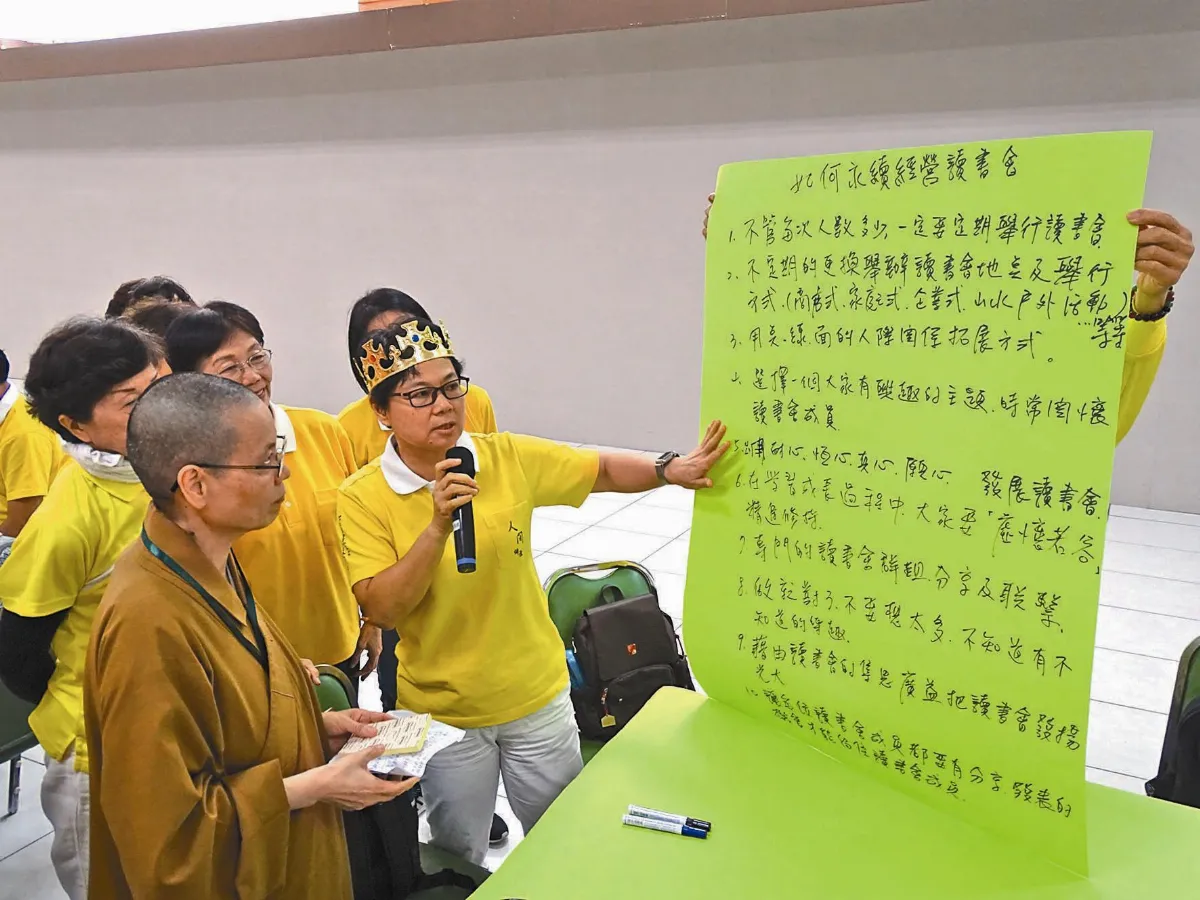 如何永續經營讀書會
1. 不管每次人數多少,一定要定期舉行讀書會.
2. 不定期的更換舉辦讀書會地点及舉行
方式.(商店式.家庭式.企業式.山水戶外活動)
…等等
3. 用点.線.面的人際関係拓展方式。
4. 選擇一個大家有興趣的主題.時常関懷
讀書會成員
5. 耐心.恒心.真心.願心. 發展讀書會.
6. 在學習成長過程中.大家要「虛懷若谷」
精進修持.
7. 專門的讀書會群組.分享及联繫.
8. 做就對了.不要想太多.不知道有不
知道的樂趣.
9. 藉由讀書會的集思廣益把讀書會發揚
光大
10. 讀書會成員都要有分享發表的
人間